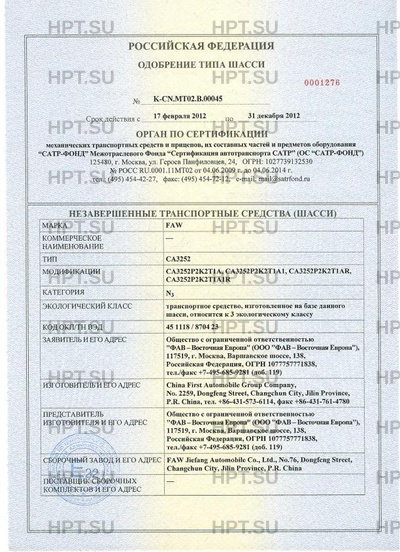 HPT.SU HPT.SU HPT.SU
РОССИЙСКАЯ ФЕДЕРАЦИЯ
ОДОБРЕНИЕ ТИПА ШАССИ
0001276
№ K-CN.MT02.B.00045
Срок действия с 17 февраля 2012 по 31 декабря 2012
ОРГАН ПО СЕРТИФИКАЦИИ
механических транспортных средств и прицепов, их составных частей и предметов оборудования
"САТР-ФОНД" Межотраслевого Фонда "Сертификация автотранспорта САТР" (ОС "САТР-ФОНД")
125480, г. Москва, ул. Героев Панфиловцев, 24, ОГРН: 1027739132530
№ РОСС RU.0001.11МТ02 от 04.06.2009 г. до 04.06.2014 г.
тел.: (495) 454-42-27, факс: (495) 454-72-12, e-mail: mail@satrfond.ru
НЕЗАВЕРШЕННЫЕ ТРАНСПОРТНЫЕ СРЕДСТВА (ШАССИ)
МАРКА FAW
КОММЕРЧЕСКОЕ НАИМЕНОВАНИЕ —
ТИП CA3252
МОДИФИКАЦИИ CA3252P2K2T1A, CA3252P2K2T1A1, CA3252P2K2T1AR,
CA3252P2K2T1A1R
КАТЕГОРИЯ N3
ЭКОЛОГИЧЕСКИЙ КЛАСС транспортное средство, изготовленное на базе данного
шасси, относится к 3 экологическому классу
КОД ОКП/ТН ВЭД 45 1118 / 8704 23
ЗАЯВИТЕЛЬ И ЕГО АДРЕС Общество с ограниченной ответственностью
"ФАВ – Восточная Европа" (ООО "ФАВ – Восточная Европа"),
117519, г. Москва, Варшавское шоссе, 138,
Российская Федерация, ОГРН 1077757771838,
тел./факс +7-495-685-9281 (доб. 119)
ИЗГОТОВИТЕЛЬ И ЕГО АДРЕС China First Automobile Group Company,
No. 2259, Dongfeng Street, Changchun City, Jilin Province,
P.R. China, тел. +86-431-573-6114, факс +86-431-761-4780
ПРЕДСТАВИТЕЛЬ ИЗГОТОВИТЕЛЯ И ЕГО АДРЕС Общество с ограниченной ответственностью
"ФАВ – Восточная Европа" (ООО "ФАВ – Восточная Европа"),
117519, г. Москва, Варшавское шоссе, 138,
Российская Федерация, ОГРН 1077757771838,
тел./факс +7-495-685-9281 (доб. 119)
СБОРОЧНЫЙ ЗАВОД И ЕГО АДРЕС FAW Jiefang Automobile Co., Ltd., No.76, Dongfeng Street,
Changchun City, Jilin Province, P.R. China
ПОСТАВЩИК СБОРОЧНЫХ КОМПЛЕКТОВ И ЕГО АДРЕС —
HPT.SU HPT.SU HPT.SU